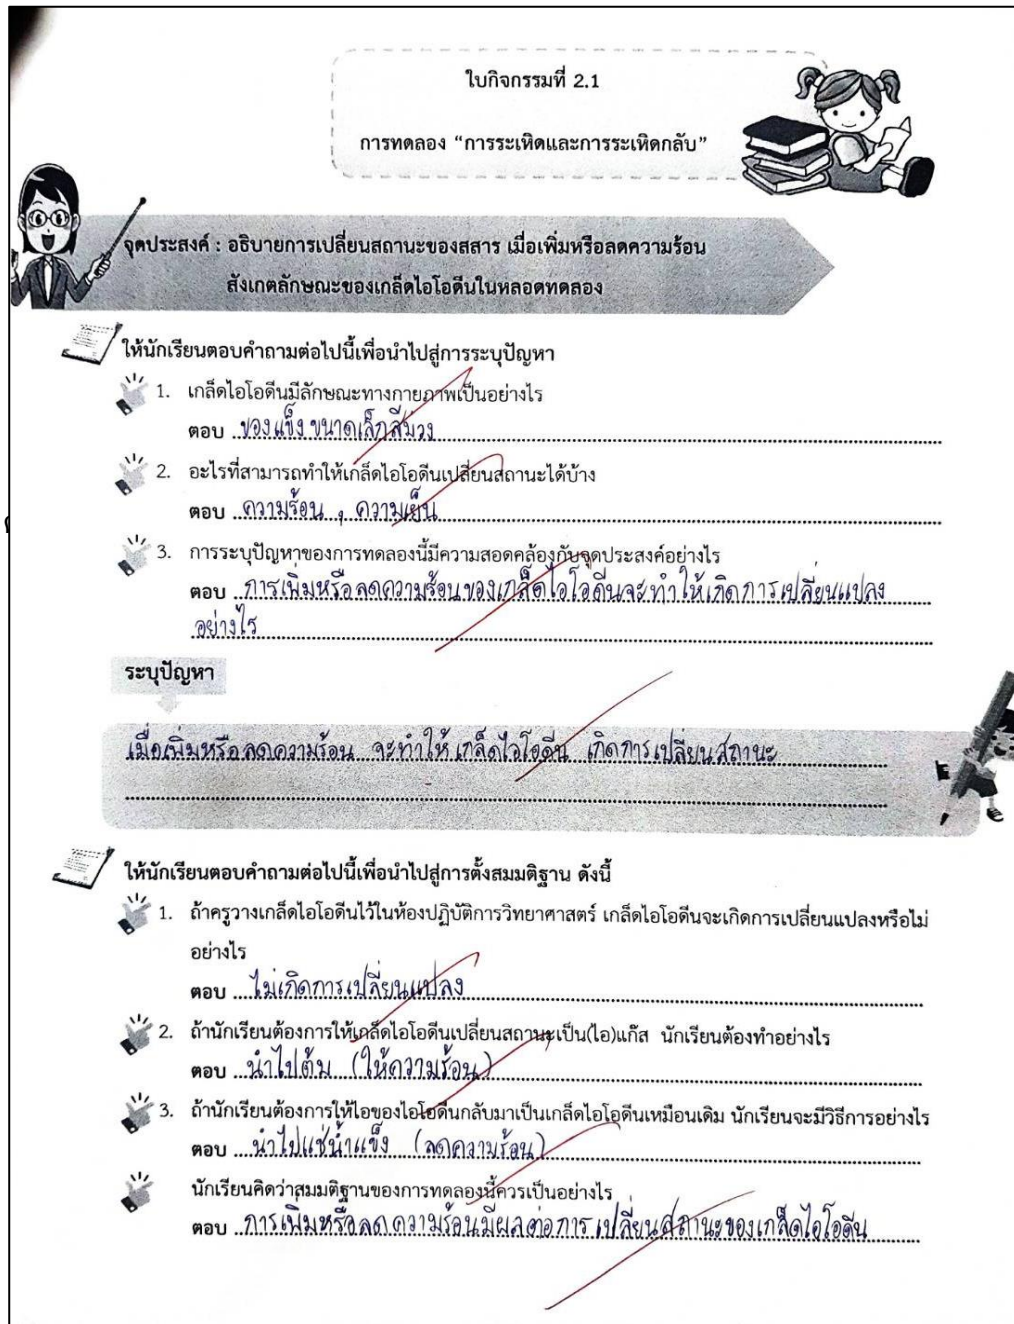 ใบกิจกรรมที่ 2.1
การทดลอง “การระเหิดและการระเหิดกลับ”
จุดประสงค์ : อธิบายการเปลี่ยนสถานะของสสาร เมื่อเพิ่มหรือลดความร้อน
สังเกตลักษณะของเกล็ดไอโอดีนในหลอดทดลอง
ให้นักเรียนตอบคำถามต่อไปนี้เพื่อนำไปสู่การระบุปัญหา
1. เกล็ดไอโอดีนมีลักษณะทางกายภาพเป็นอย่างไร
ตอบ ของแข็ง ขนาดเล็กสีม่วง
2. อะไรที่สามารถทำให้เกล็ดไอโอดีนเปลี่ยนสถานะได้บ้าง
ตอบ ความร้อน , ความเย็น
3. การระบุปัญหาของการทดลองนี้มีความสอดคล้องกับจุดประสงค์อย่างไร
ตอบ การเพิ่มหรือลดความร้อนของเกล็ดไอโอดีนจะทำให้เกิดการเปลี่ยนแปลง
อย่างไร
ระบุปัญหา
เมื่อเพิ่มหรือลดความร้อน จะทำให้เกล็ดไอโอดีน เกิดการเปลี่ยนสถานะ
ให้นักเรียนตอบคำถามต่อไปนี้เพื่อนำไปสู่การตั้งสมมติฐาน ดังนี้
1. ถ้าครูวางเกล็ดไอโอดีนไว้ในห้องปฏิบัติการวิทยาศาสตร์ เกล็ดไอโอดีนจะเกิดการเปลี่ยนแปลงหรือไม่
อย่างไร
ตอบ ไม่เกิดการเปลี่ยนแปลง
2. ถ้านักเรียนต้องการให้เกล็ดไอโอดีนเปลี่ยนสถานะเป็น(ไอ)แก๊ส นักเรียนต้องทำอย่างไร
ตอบ นำไปต้ม (ให้ความร้อน)
3. ถ้านักเรียนต้องการให้ไอของไอโอดีนกลับมาเป็นเกล็ดไอโอดีนเหมือนเดิม นักเรียนจะมีวิธีการอย่างไร
ตอบ นำไปแช่น้ำแข็ง (ลดความร้อน)
นักเรียนคิดว่าสมมติฐานของการทดลองนี้ควรเป็นอย่างไร
ตอบ การเพิ่มหรือลดความร้อนมีผลต่อการเปลี่ยนสถานะของเกล็ดไอโอดีน